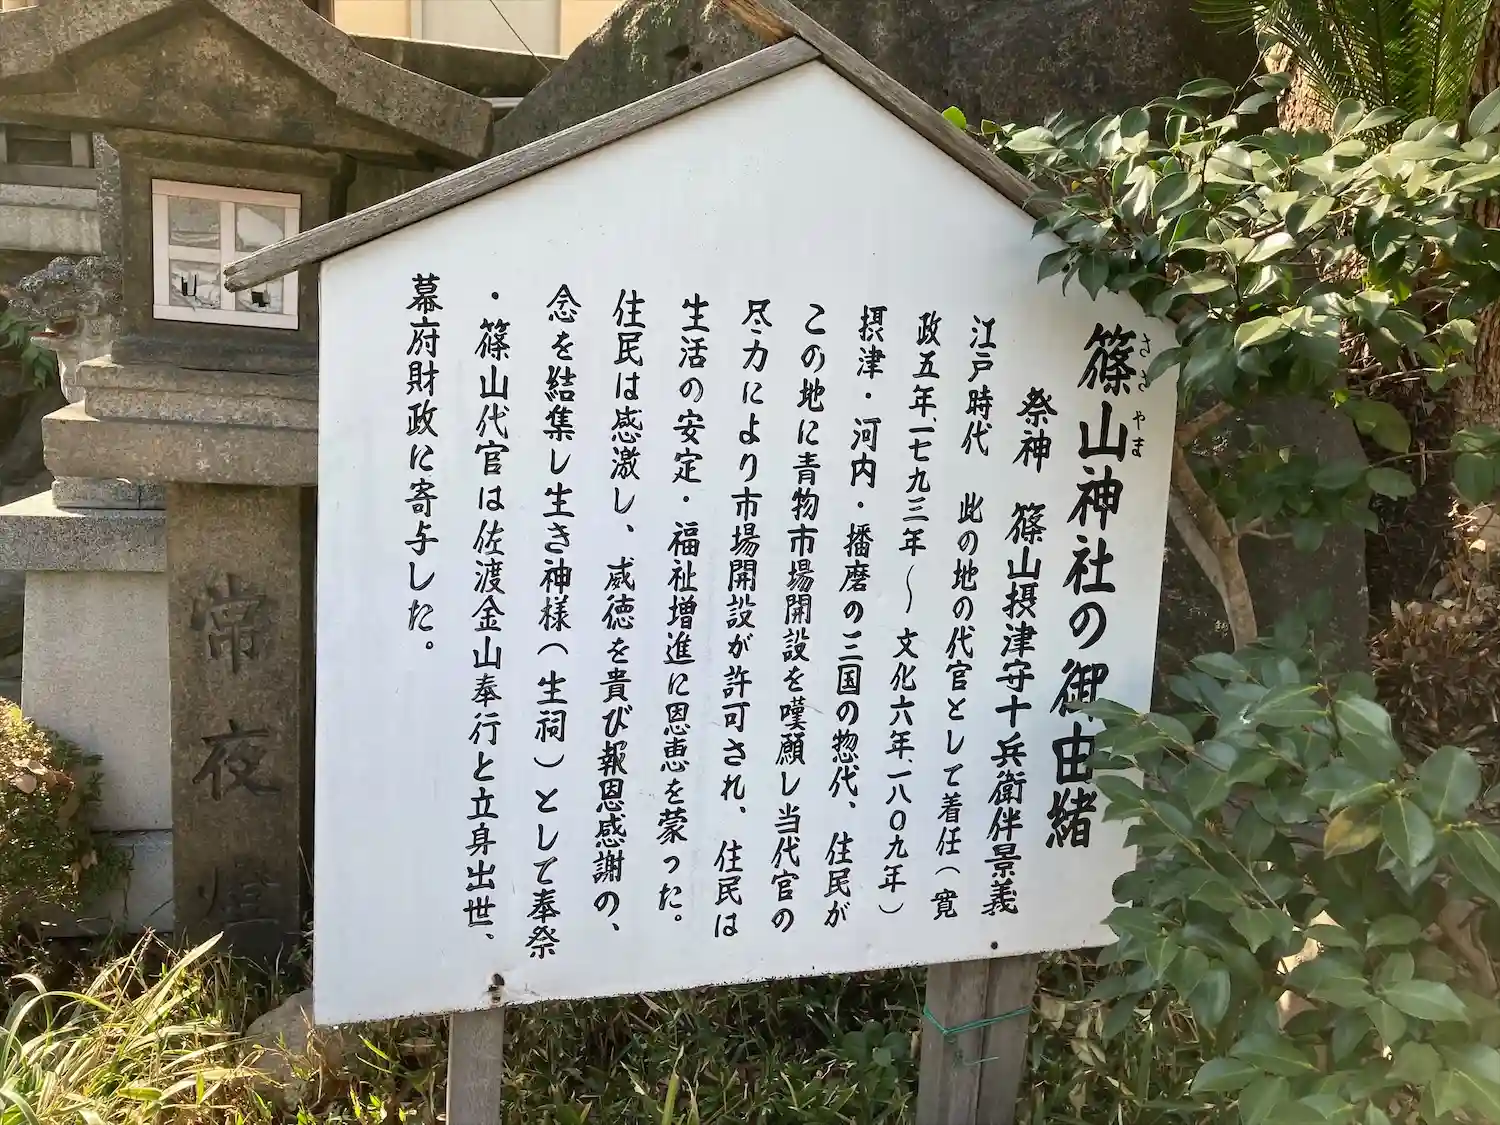 篠山神社の御由緒
ささ やま
祭神 篠山摂津守十兵衛伴景義
江戸時代 此の地の代官として着任(寛
政五年、一七九三年〜文化六年、一八〇九年)
摂津・河内・播磨の三国の惣代、住民が
この地に青物市場開設を嘆願し当代官の
尽力により市場開設が許可され、住民は
生活の安定・福祉増進に恩恵を蒙った。
住民は感激し、威徳を貴び報恩感謝の、
念を結集し生き神様(生祠)として奉祭
・篠山代官は佐渡金山奉行と立身出世、
幕府財政に寄与した。
常夜燈